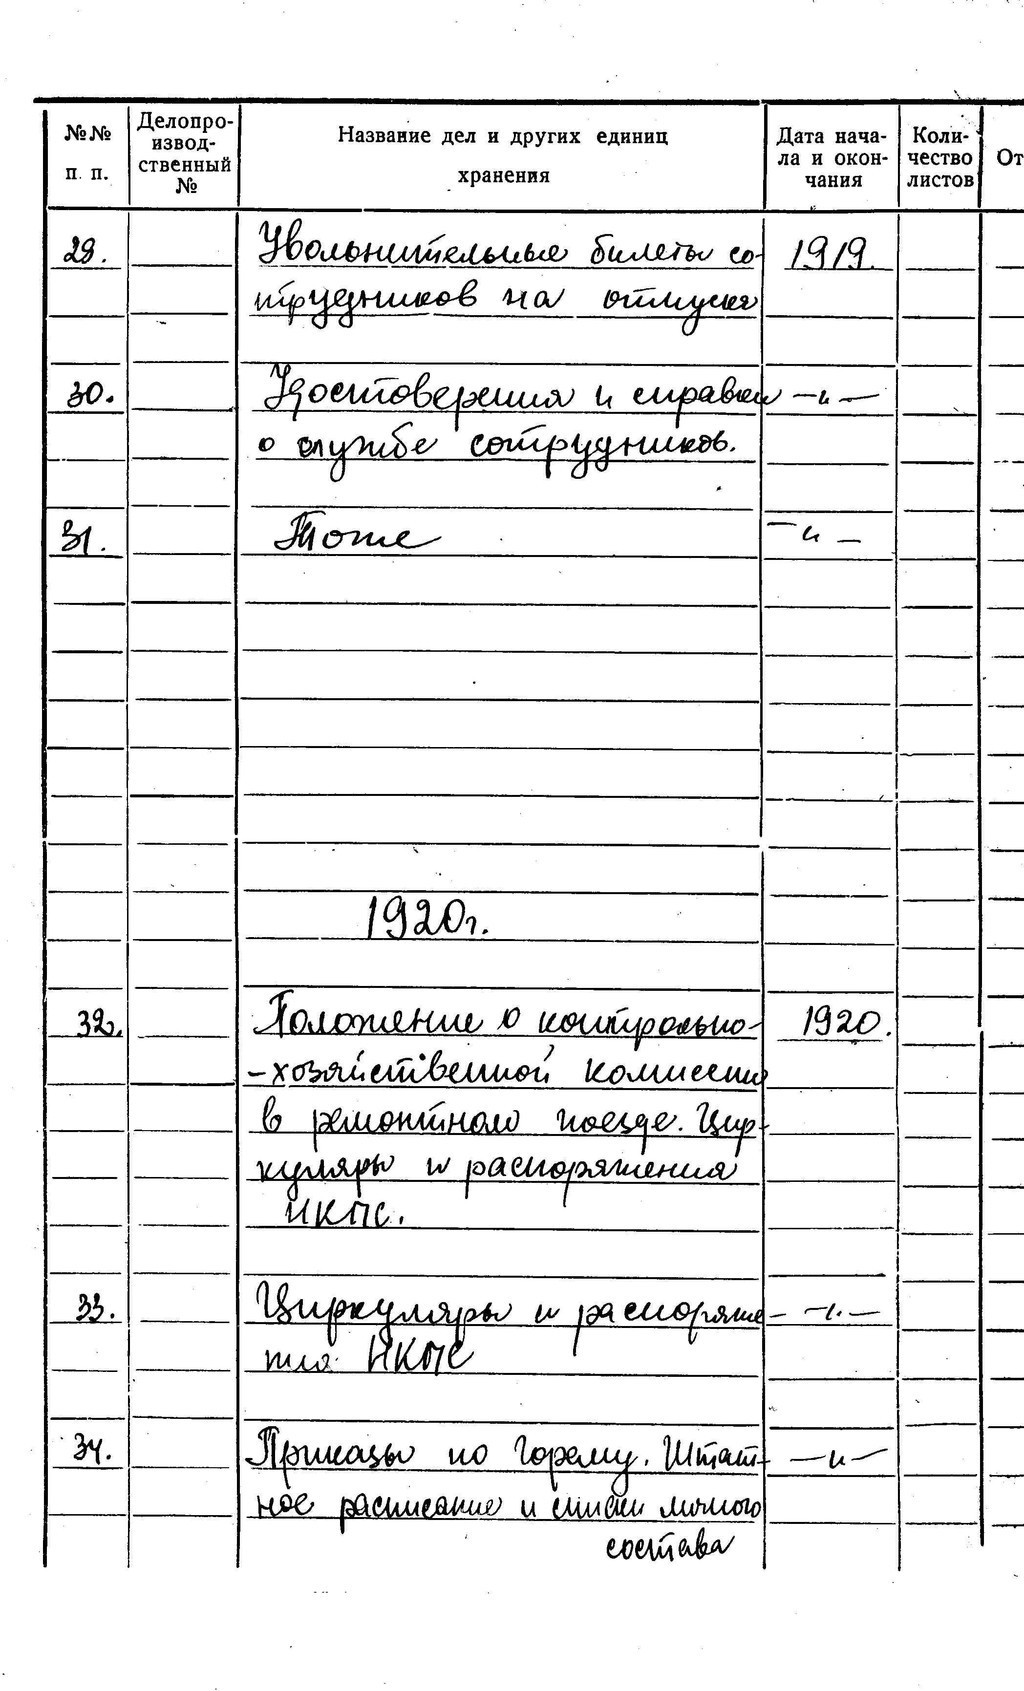 №№ п. п.
Делопро-
извод-
ственный
№
Название дел и других единиц
хранения
Дата нача-
ла и окон-
чания
Коли-
чество
листов
От
29. Увольнительные билеты со- 1919.
трудников на отпуска
30. Удостоверения и справки —и—
о службе сотрудников.
31. Тоже —и—
1920г.
32. Положение о контрольно- 1920.
-хозяйственной комиссии
в ремонтном поезде. Цир-
куляры и распоряжения
НКПС.
33. Циркуляры и распоряже- —и—
ния НКПС
34. Приказы по Горему. Штат- —и—
ное расписание и списки личного
состава